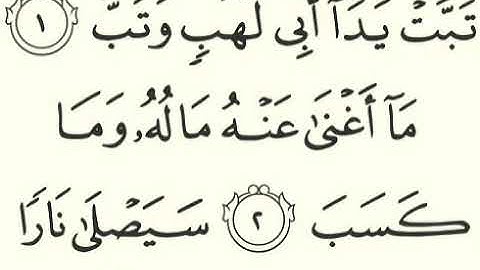 تَبَّتْ يَدَآ أَبِي لَهَبٍ وَتَبَّ ١
مَآ أَغْنَىٰ عَنْهُ مَالُهُۥ وَمَا
كَسَبَ ٢ سَيَصْلَىٰ نَارًا